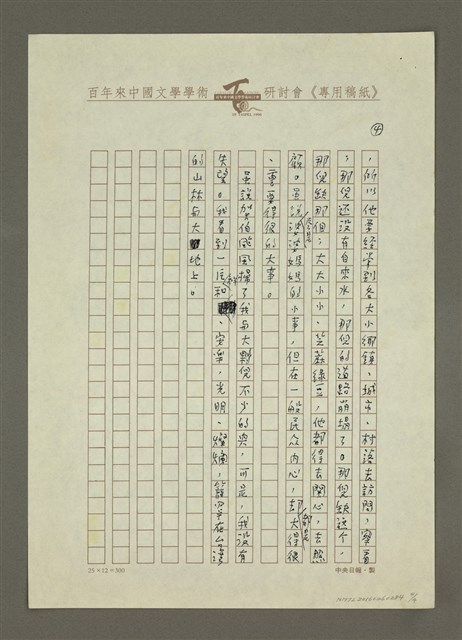 百年來中國文學學術研討會《專用稿紙》
④
，所以他要經常到各大小鄉鎮、城市、村落去訪問，察看
，那兒還沒有自來水，那兒的道路崩塌了。那兒缺這个，
那兒缺那個；大大小小、芝蔴綠豆，他都得去關心，去照
顧。雖說婆婆媽媽的小事，但在一般民众內心，都大得很
、重要得很的大事。
雖說賀伯颱風掃了我与大夥兒不少的興，可是，我沒有
失望。我看到一片和、安樂，光明、燦爛，籠罩在台灣
的山林与大地上。
25×12＝300
中央日報・製